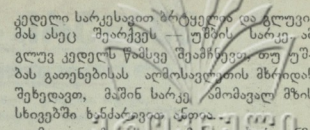 კედელი სარკესავით ბრტყელია და გლუვი
მას ასეც შეარქვეს — უშბის სარკე
გლუვ კედელს წამსვე შეამჩნევთ, თუ უშ-
ბას გათენებისას აღმოსავლეთის მხრიდან
შეხედავთ, მაშინ სარკე ამომავალ მზის
სხივებში ხანძარივით ანთია